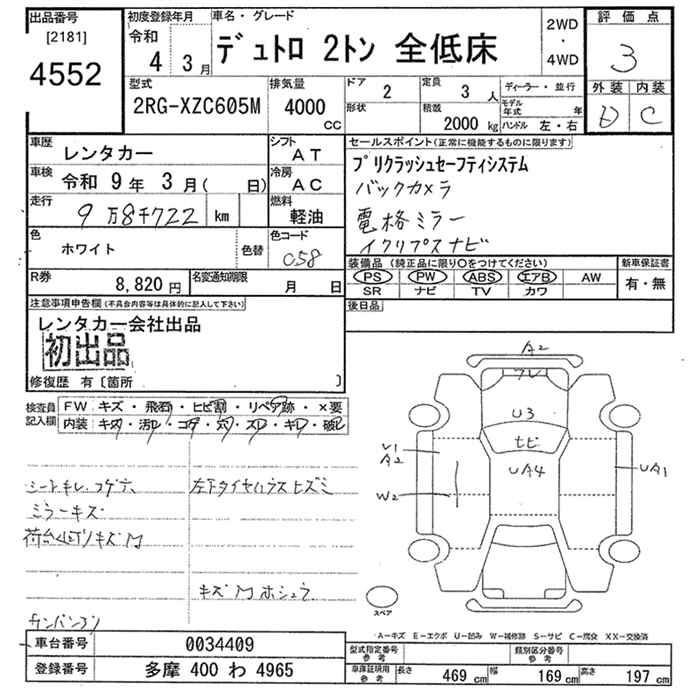 出品番号
[2181]
4552
初度登録年月
令和
4 3月
車名・グレード
デュトロ 2トン 全低床
2WD
・
4WD
評価点
3
外装 内装
D C
型式
2RG-XZC605M
排気量
4000
CC
ドア
2
形状
定員
3 人
積載
2000 kg
ディーラー・並行
モデル年式 年
ハンドル 左・右
車歴
レンタカー
シフト
AT
車検
令和 9年 3月( 日)
冷房
AC
走行
9万8千722 km
燃料
軽油
色
ホワイト
色替
色コード
058
R券
8,820円
名変通知期限
月 日
セールスポイント(正常に機能するものに限ります)
プリクラッシュセーフティシステム
バックカメラ
電格ミラー
イクリプスナビ
装備品(純正品に限り○をつけてください)
PS PW ABS エアB AW
SR ナビ TV カワ
新車保証書
有・無
後日品
注意事項申告欄(不具合内容等は具体的に記入して下さい)
レンタカー会社出品
初出品
修復歴 有〔箇所 〕
検査員記入欄
FW キズ・飛石・ヒビ割・リペア跡・×要
内装 キズ・汚レ・コゲ・穴・スレ・キレ・破レ
シートキレ コゲ穴
ミラーキズ
左下タイヤハウスヒズミ
キズMホシュウ
サンバンコン
A2
フレ
U3
ヒビ
UA4
U1
A2
W2
UA1
スペア
A-キズ E-エクボ U-凹み W-補修跡 S-サビ C-腐食 XX-交換済
車台番号
0034409
登録番号
多摩 400 わ 4965
型式指定番号
参考
類別区分番号
参考
車庫証明用
参考
長さ 469cm 幅 169cm 高さ 197cm